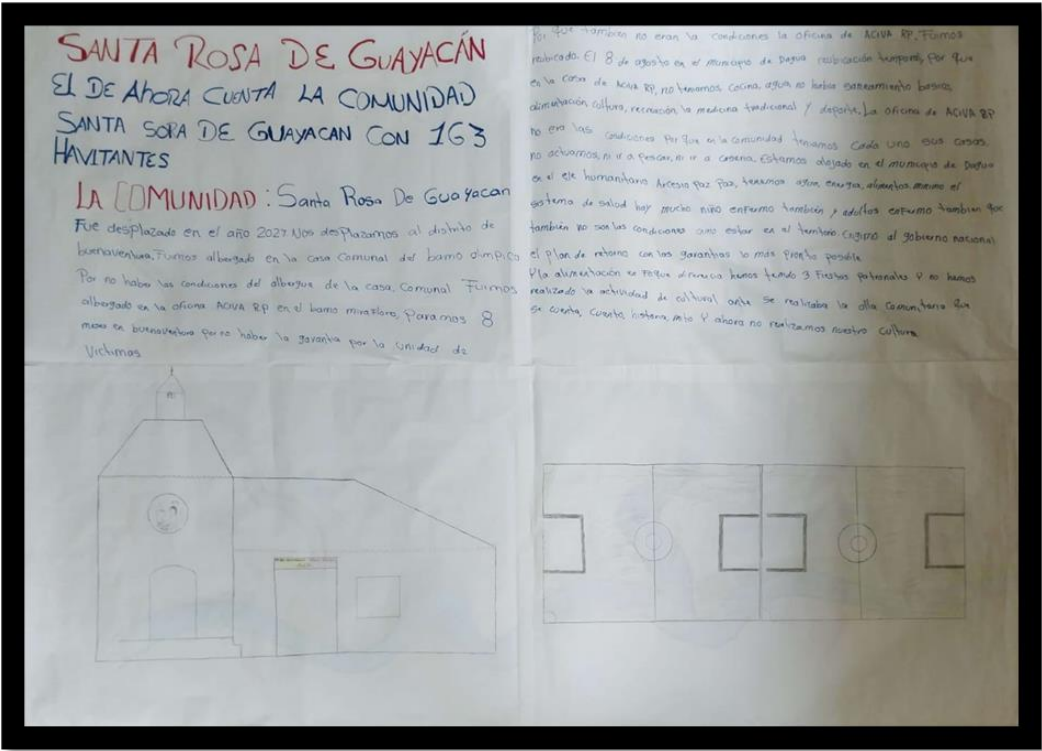 SANTA ROSA DE GUAYACÁN
EL DE AHORA CUENTA LA COMUNIDAD
SANTA SORA DE GUAYACAN CON 163
HAVITANTES
LA COMUNIDAD: Santa Rosa De Guayacan
Fue desplazado en el año 2027. Nos desplazamos al distrito de
buenaventura, Fuimos albergado en la casa Comunal del barrio olimpico
Por no haber las condiciones del albergue de la casa Comunal Fuimos
albergado en la oficina ACIVA RP en el barrio miraflore, Paramos 8
mese en buenaventura por no haber la garantia por la unidad de
Victimas
Por que tambien no eran la condiciones la oficina de ACIVA RP, Fuimos
reubicado. El 8 de agosto en el municipio de Dagua reubicación temporal, Por que
en la casa de ACIVA RP, no teniamos cocina, agua no habia saneamiento basico,
alimentación, cultura, recreación la medicina tradicional y deporte. La oficina de ACIVA RP
no era las condiciones Por que en la comunidad teniamos Cada uno sus casas.
no actuamos, ni ir a pescar, ni ir a caseria. Estamos alojado en el municipio de Dagua
en el eje humanitario Paz, tenemos agua, energia, alimentos el
sistema de salud hay mucho niño enfermo tambien y adultos enfermo tambien
tambien no son las condiciones como estar en el territorio. al gobierno nacional
el plan de retorno con las garantias lo más pronto posible
Y la alimentación es hemos tenido 3 Fiestas patronales Y no hemos
realizado la actividad de cultural ante se realizaba la olla Comunitaria
se cuenta, cuento, historia, mito Y ahora no realizamos nuestro cultura